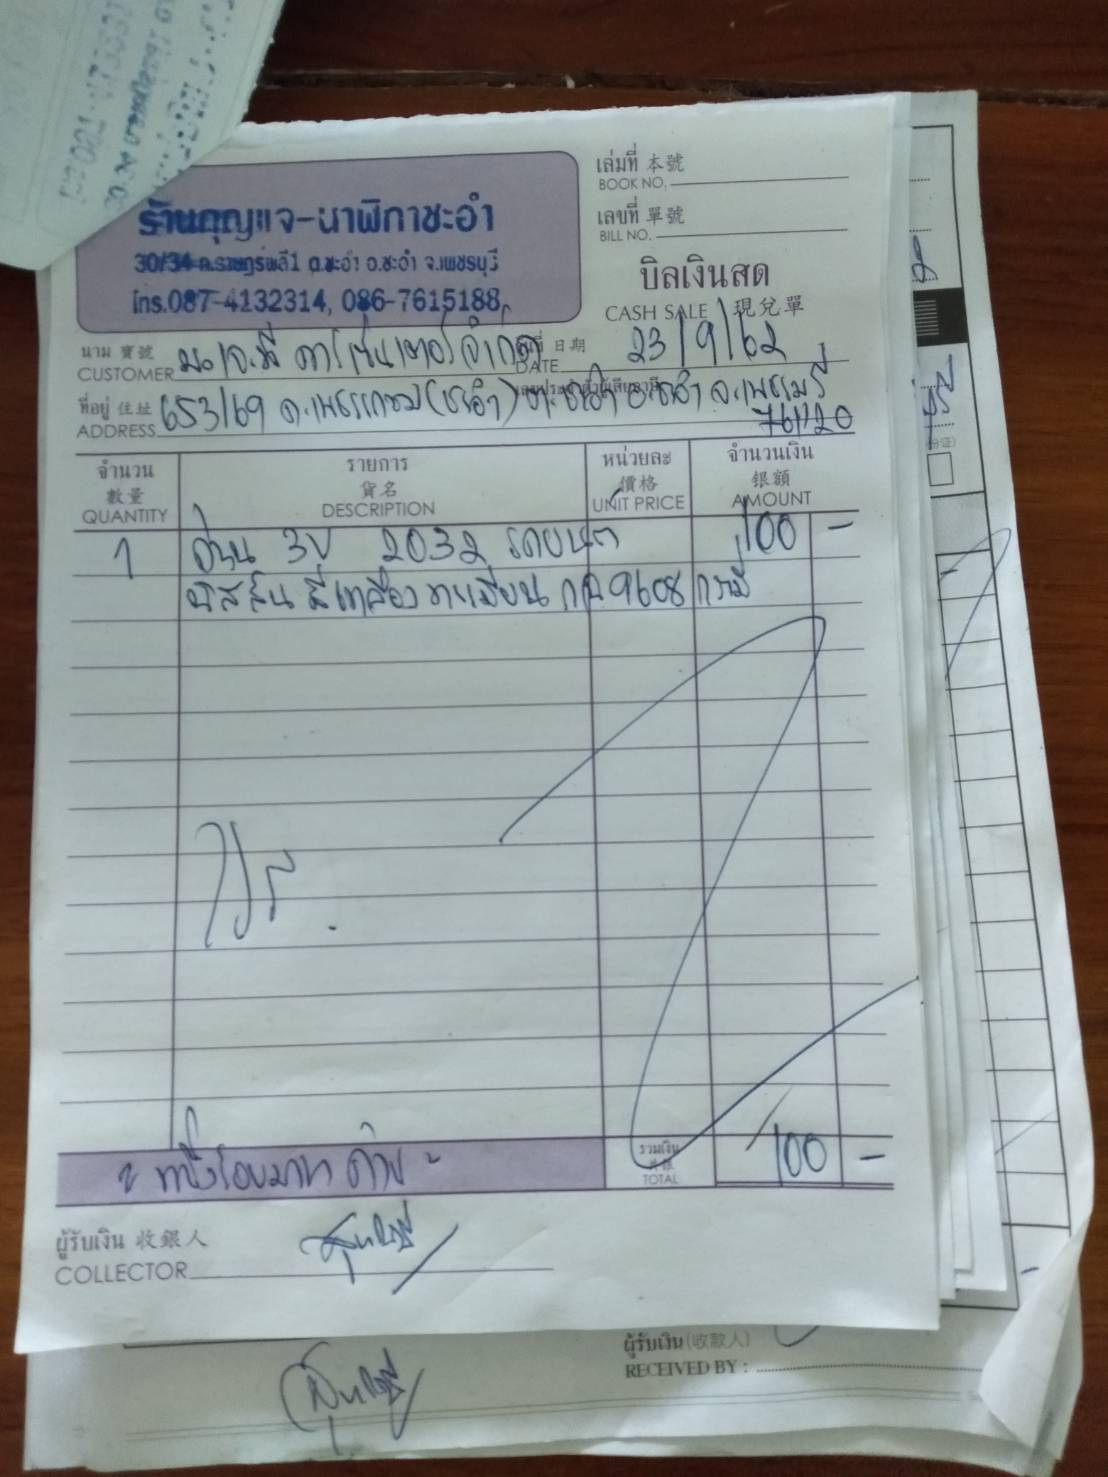 ร้านกุญแจ-นาฬิกาชะอำ
30/34 ถ.ราษฎรพลี1 ต.ชะอำ อ.ชะอำ จ.เพชรบุรี
โทร.087-4132314, 086-7615188
เล่มที่ 本號
BOOK NO.
เลขที่ 單號
BILL NO.
บิลเงินสด
CASH SALE 現兌單
นาม 寶號
CUSTOMER จำกัด
วันที่ 日期
DATE 23/9/62
เลขประจำตัวผู้เสียภาษี
ที่อยู่ 住址
ADDRESS 653/69 ถ.เพชรเกษม (ชะอำ) ต.ชะอำ อ.ชะอำ จ.เพชรบุรี
76120
จำนวน 數量 QUANTITY
รายการ 貨名 DESCRIPTION
หน่วยละ 價格 UNIT PRICE
จำนวนเงิน 銀額 AMOUNT
1 ถ่าน 3V 2032 รถยนต์ 100 -
นิสสัน สีเหลือง ทะเบียน 9608
หนึ่งร้อยบาทถ้วน
รวมเงิน
TOTAL
100 -
ผู้รับเงิน 收銀人
COLLECTOR
ผู้รับเงิน (收款人)
RECEIVED BY :